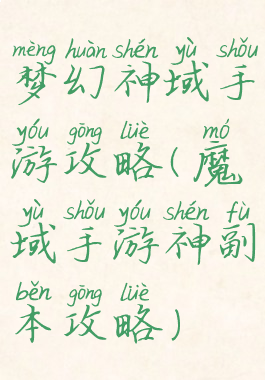 mèng huàn shén yù shǒu
梦幻神域手
yóu gōng lüè mó
游攻略(魔
yù shǒu yóu shén fù
域手游神副
běn gōng lüè
本攻略)